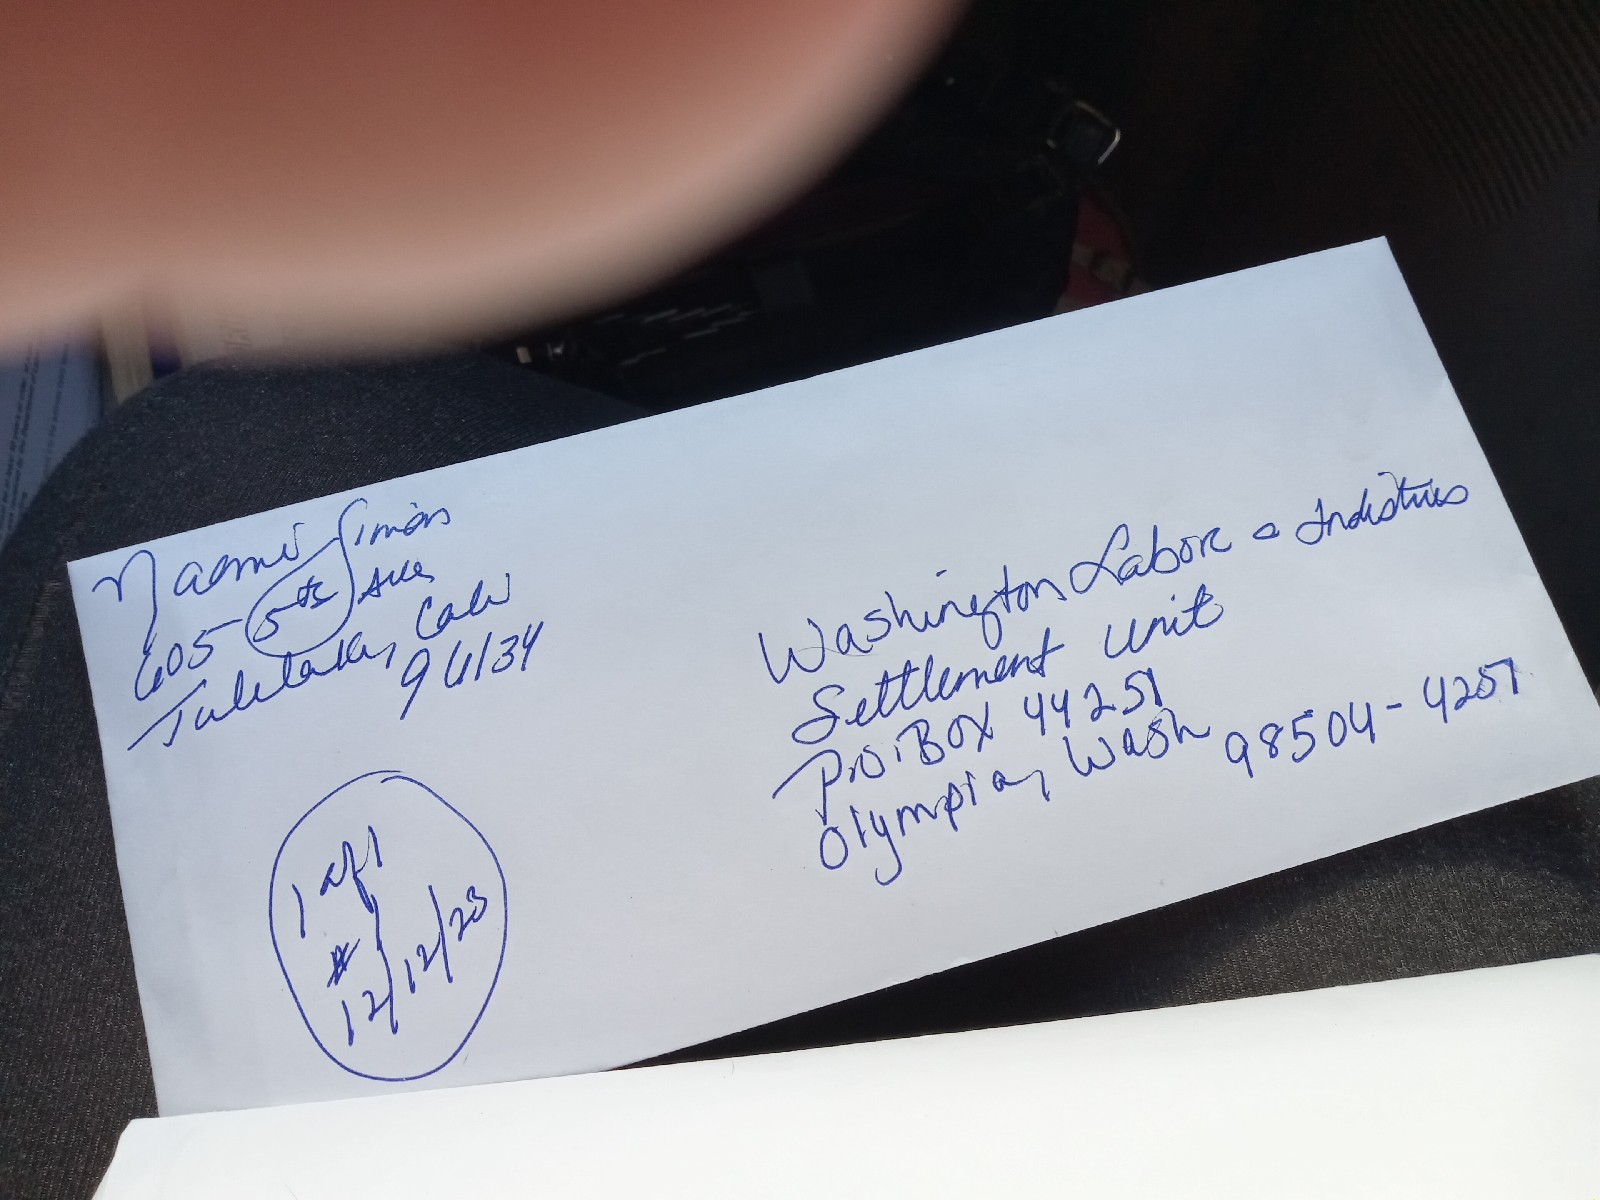 Naomi Simons
605 5th Ave
Tulelake, Cali
96134
Washington Labore & Indistries
Settlement unit
P.O. BOX 44251
Olympia, Wash 98504-4251
1 of 1
#1
12/12/23